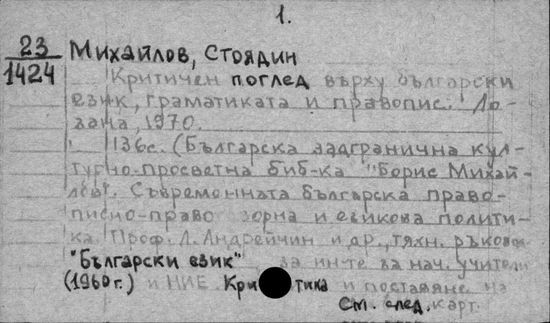 1.
23
1424
Михайлов, Стоядин
Критичен поглед върху български
език, граматиката и правопис. Ло-
зана, 1970.
136с. (Българска задгранична кул-
турно-просветна биб-ка "Борис Михай-
лов". Съвременната българска право-
писно-право зорна и езикова полити-
ка. Проф. Л. Андрейчин и др., тяхн. ръковод.
"Български език" за ин-те за нач. учители
(1960г.) и НИЕ. Критика и поставяне на
См. след. карт.